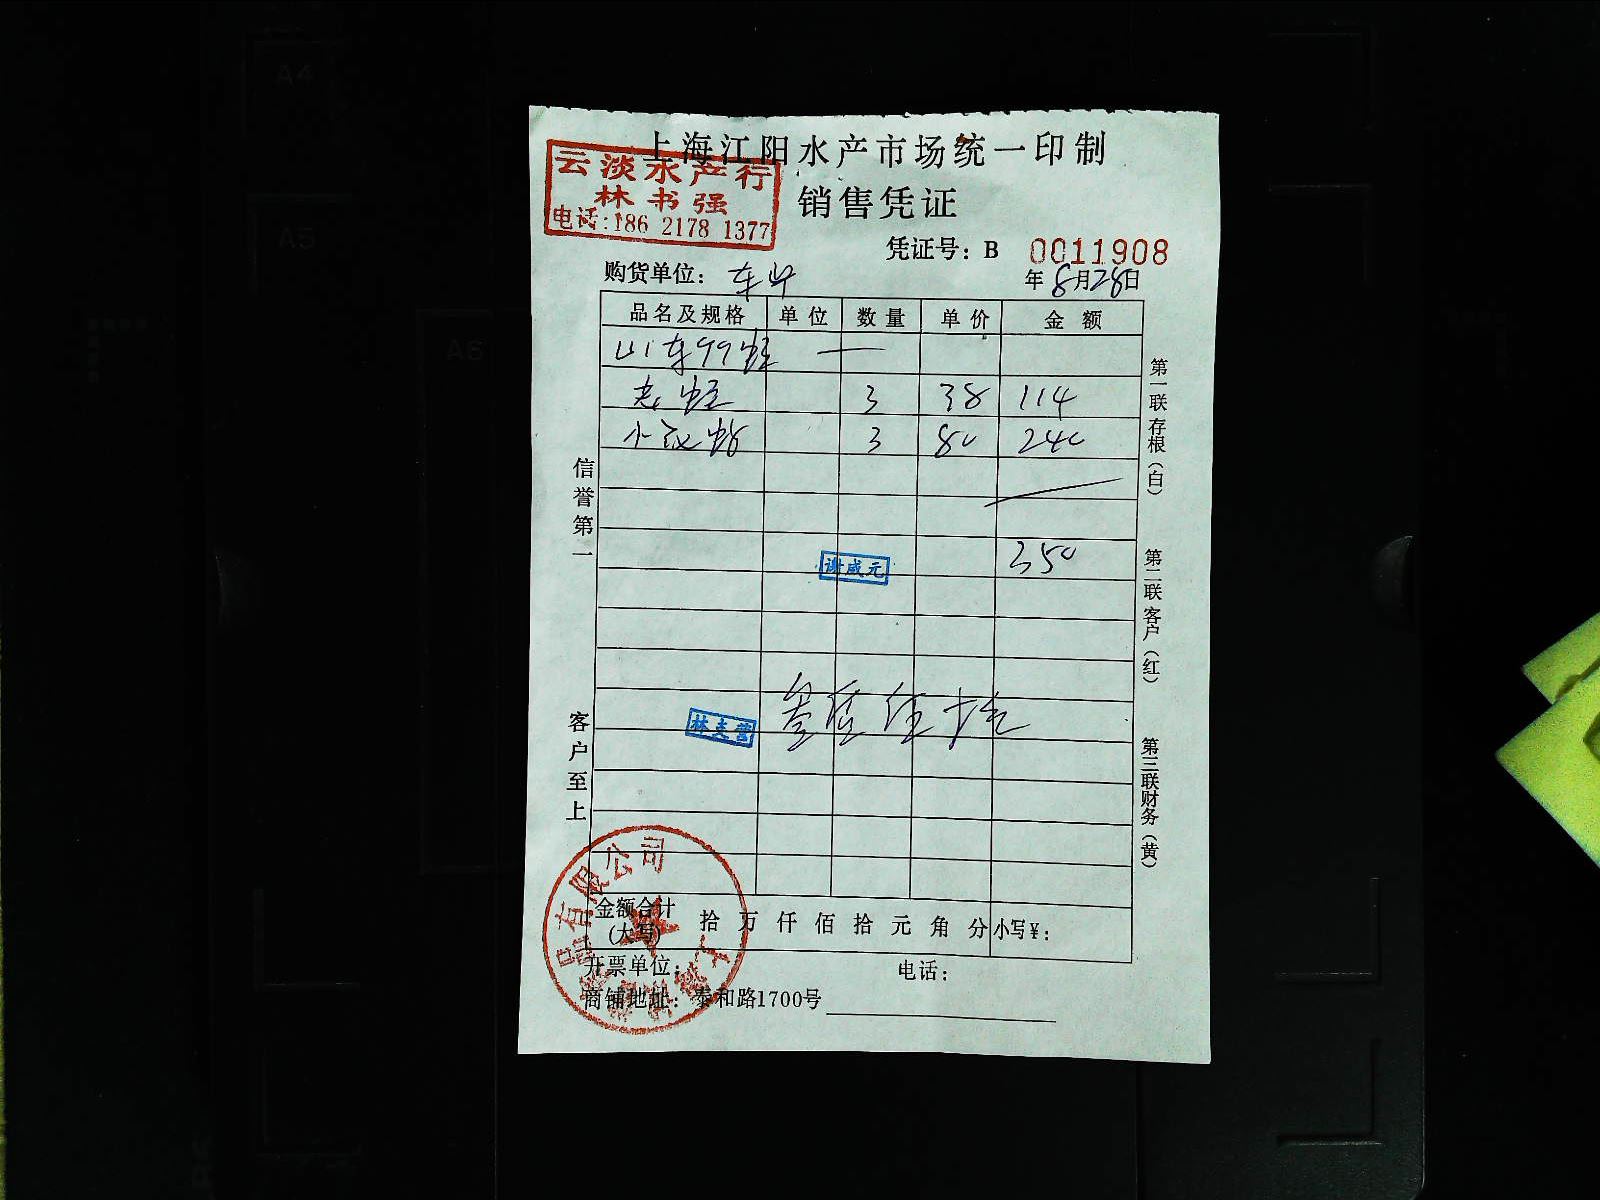 上海江阳水产市场统一印制
云淡水产行
林书强
电话:186 2178 1377
销售凭证
凭证号: B 0011908
购货单位:
年8月28日
品名及规格 单位 数量 单价 金额
山东99蛏 一
老蛏 3 38 114
小 3 80 240
350
谢咸元
林夫营
信誉第一
客户至上
第一联存根(白)
第二联客户(红)
第三联财务(黄)
金额合计(大写) 拾 万 仟 佰 拾 元 角 分 小写¥:
开票单位: 电话:
商铺地址: 泰和路1700号
有限公司